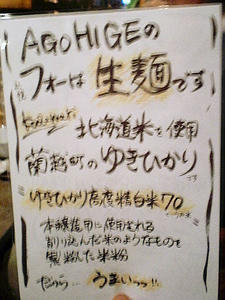 AGOHIGEの
フォーは生麺です
北海道米を使用
蘭越町のゆきひかり
です
ゆきひかり高度精白米70
本醸造用に使用される
削り込んだ米のようなものを
製粉した米粉
だから… うまいっっ!!